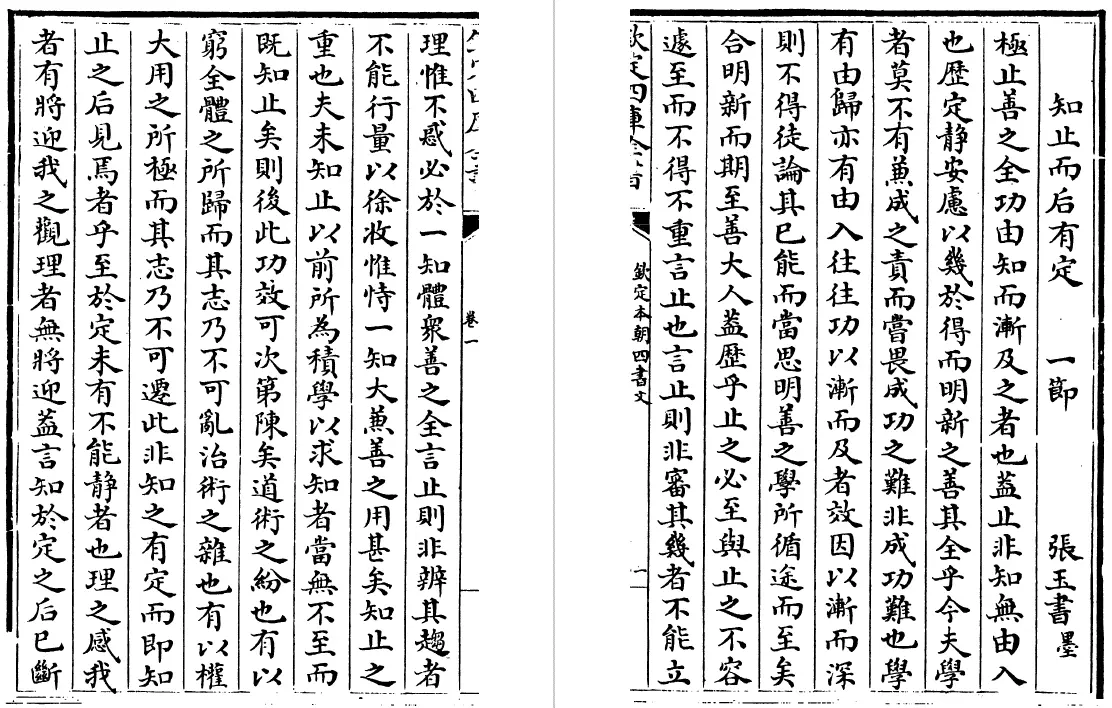 知止而后有定 一節 張玉書墨
極止善之全功由知而漸及之者也葢止非知無由入
也歷定静安慮以幾於得而明新之善其全乎今夫學
者莫不有兼成之責而嘗畏成功之難非成功難也學
有由歸亦有由入往往功以漸而及者效因以漸而深
則不得徒論其已能而當思明善之學所循途而至矣
合明新而期至善大人葢歷乎止之必至與止之不容
遽至而不得不重言止也言止則非審其幾者不能立
欽定四庫全書
欽定本朝四書文
卷一
理惟不惑必於一知體衆善之全言止則非辨其趨者
不能行量以徐收惟恃一知大兼善之用甚矣知止之
重也夫未知止以前所為積學以求知者當無不至而
既知止矣則後此功效可次第陳矣道術之紛也有以
窮全體之所歸而其志乃不可亂治術之雜也有以權
大用之所極而其志乃不可遷此非知之有定而即知
止之后見焉者乎至於定未有不能静者也理之感我
者有將迎我之觀理者無將迎葢言知於定之后已斷